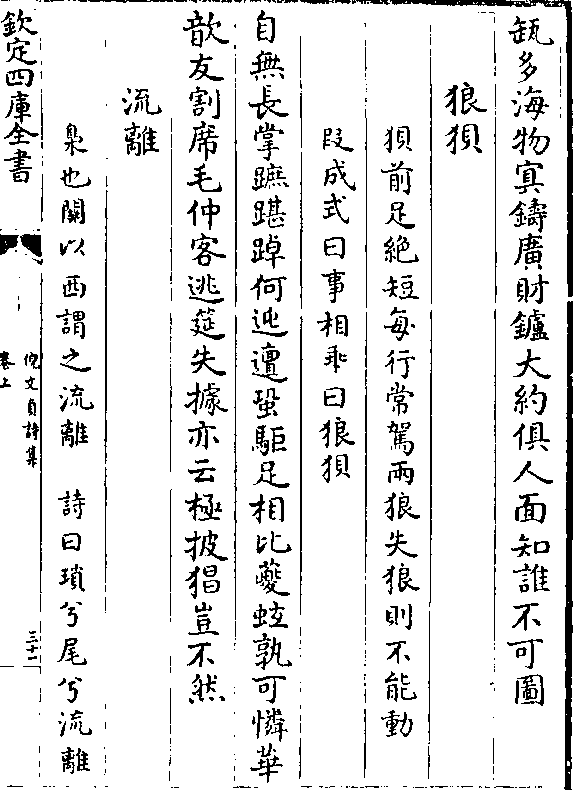 瓻多海物寘鑄廣財鑪大約俱人面知誰不可圖
狼狽
狽前足絶短每行常駕兩狼失狼則不能動
段成式曰事相乖曰狼狽
自無長掌蹠踸踔何迍邅蛩駏足相比蘷蚿孰可憐華
歆友割席毛仲客逃筵失據亦云極披猖豈不然
流離
梟也關以西謂之流離　詩曰瑣兮尾兮流離
欽定四庫全書
倪文貞詩集
卷上
三十一